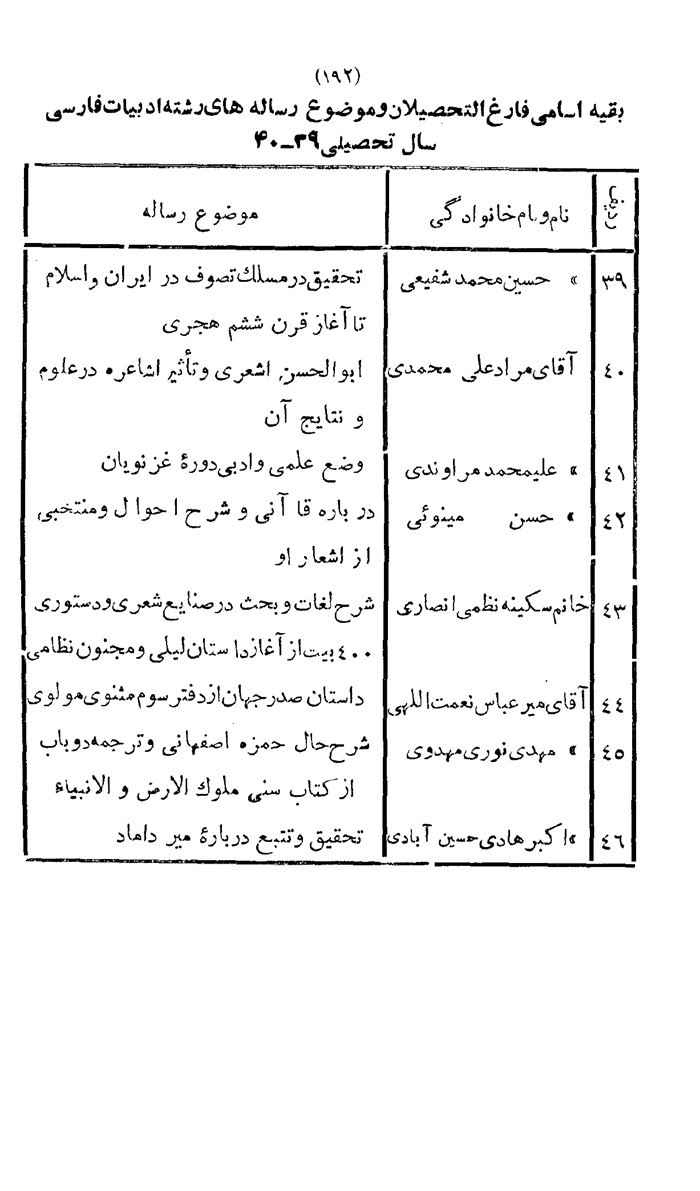 (۱۹۲)
بقیه اسامی فارغ التحصیلان و موضوع رساله های رشته ادبیات فارسی
سال تحصیلی ۳۹ـ۴۰
ردیف نام و نام خانوادگی موضوع رساله
۳۹ » حسین محمد شفیعی تحقیق در مسلك تصوف در ایران و اسلام
تا آغاز قرن ششم هجری
٤٠ آقای مراد علی محمدی ابوالحسن اشعری و تأثیر اشاعره در علوم
و نتایج آن
٤١ » علیمحمد مراوندی وضع علمی و ادبی دورۀ غزنویان
٤٢ » حسن مینوئی در باره قاآنی و شرح احوال و منتخبی
از اشعار او
٤٣ خانم سکینه نظمی انصاری شرح لغات و بحث در صنایع شعری و دستوری
٤٠٠ بیت از آغاز داستان لیلی و مجنون نظامی
٤٤ آقای میر عباس نعمت اللهی داستان صدر جهان از دفتر سوم مثنوی مولوی
٤٥ » مهدی نوری مهدوی شرح حال حمزه اصفهانی و ترجمه دو باب
از کتاب سنی ملوك الارض و الانبیاء
٤٦ » اکبر هادی حسین آبادی تحقیق و تتبع دربارۀ میر داماد